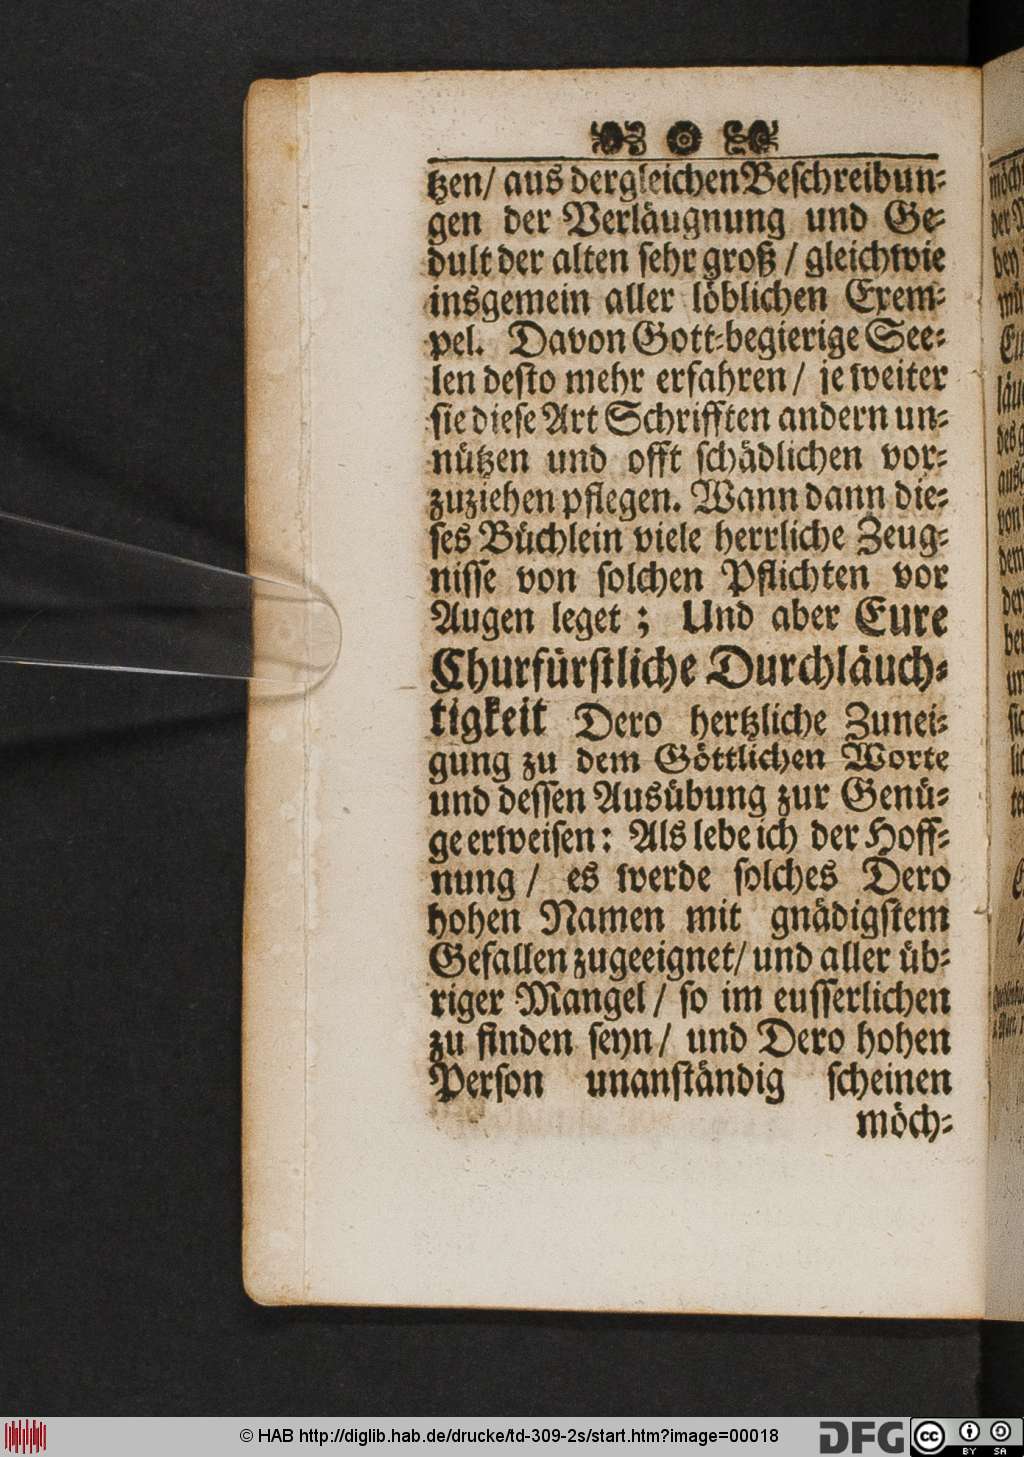 tzen/ aus dergleichen Beschreibun-
gen der Verläugnung und Ge-
dult der alten sehr groß / gleichwie
insgemein aller löblichen Exem-
pel. Davon Gott-begierige See-
len desto mehr erfahren / je weiter
sie diese Art Schrifften andern un-
nützen und offt schädlichen vor-
zuziehen pflegen. Wann dann die-
ses Büchlein viele herrliche Zeug-
nisse von solchen Pflichten vor
Augen leget ; Und aber Eure
Churfürstliche Durchläuch-
tigkeit Dero hertzliche Zunei-
gung zu dem Göttlichen Worte
und dessen Ausübung zur Genü-
ge erweisen: Als lebe ich der Hoff-
nung / es werde solches Dero
hohen Namen mit gnädigstem
Gefallen zugeeignet/ und aller üb-
riger Mangel / so im eusserlichen
zu finden seyn / und Dero hohen
Person unanständig scheinen
möch-
© HAB http://diglib.hab.de/drucke/td-309-2s/start.htm?image=00018
DFG
cc BY SA